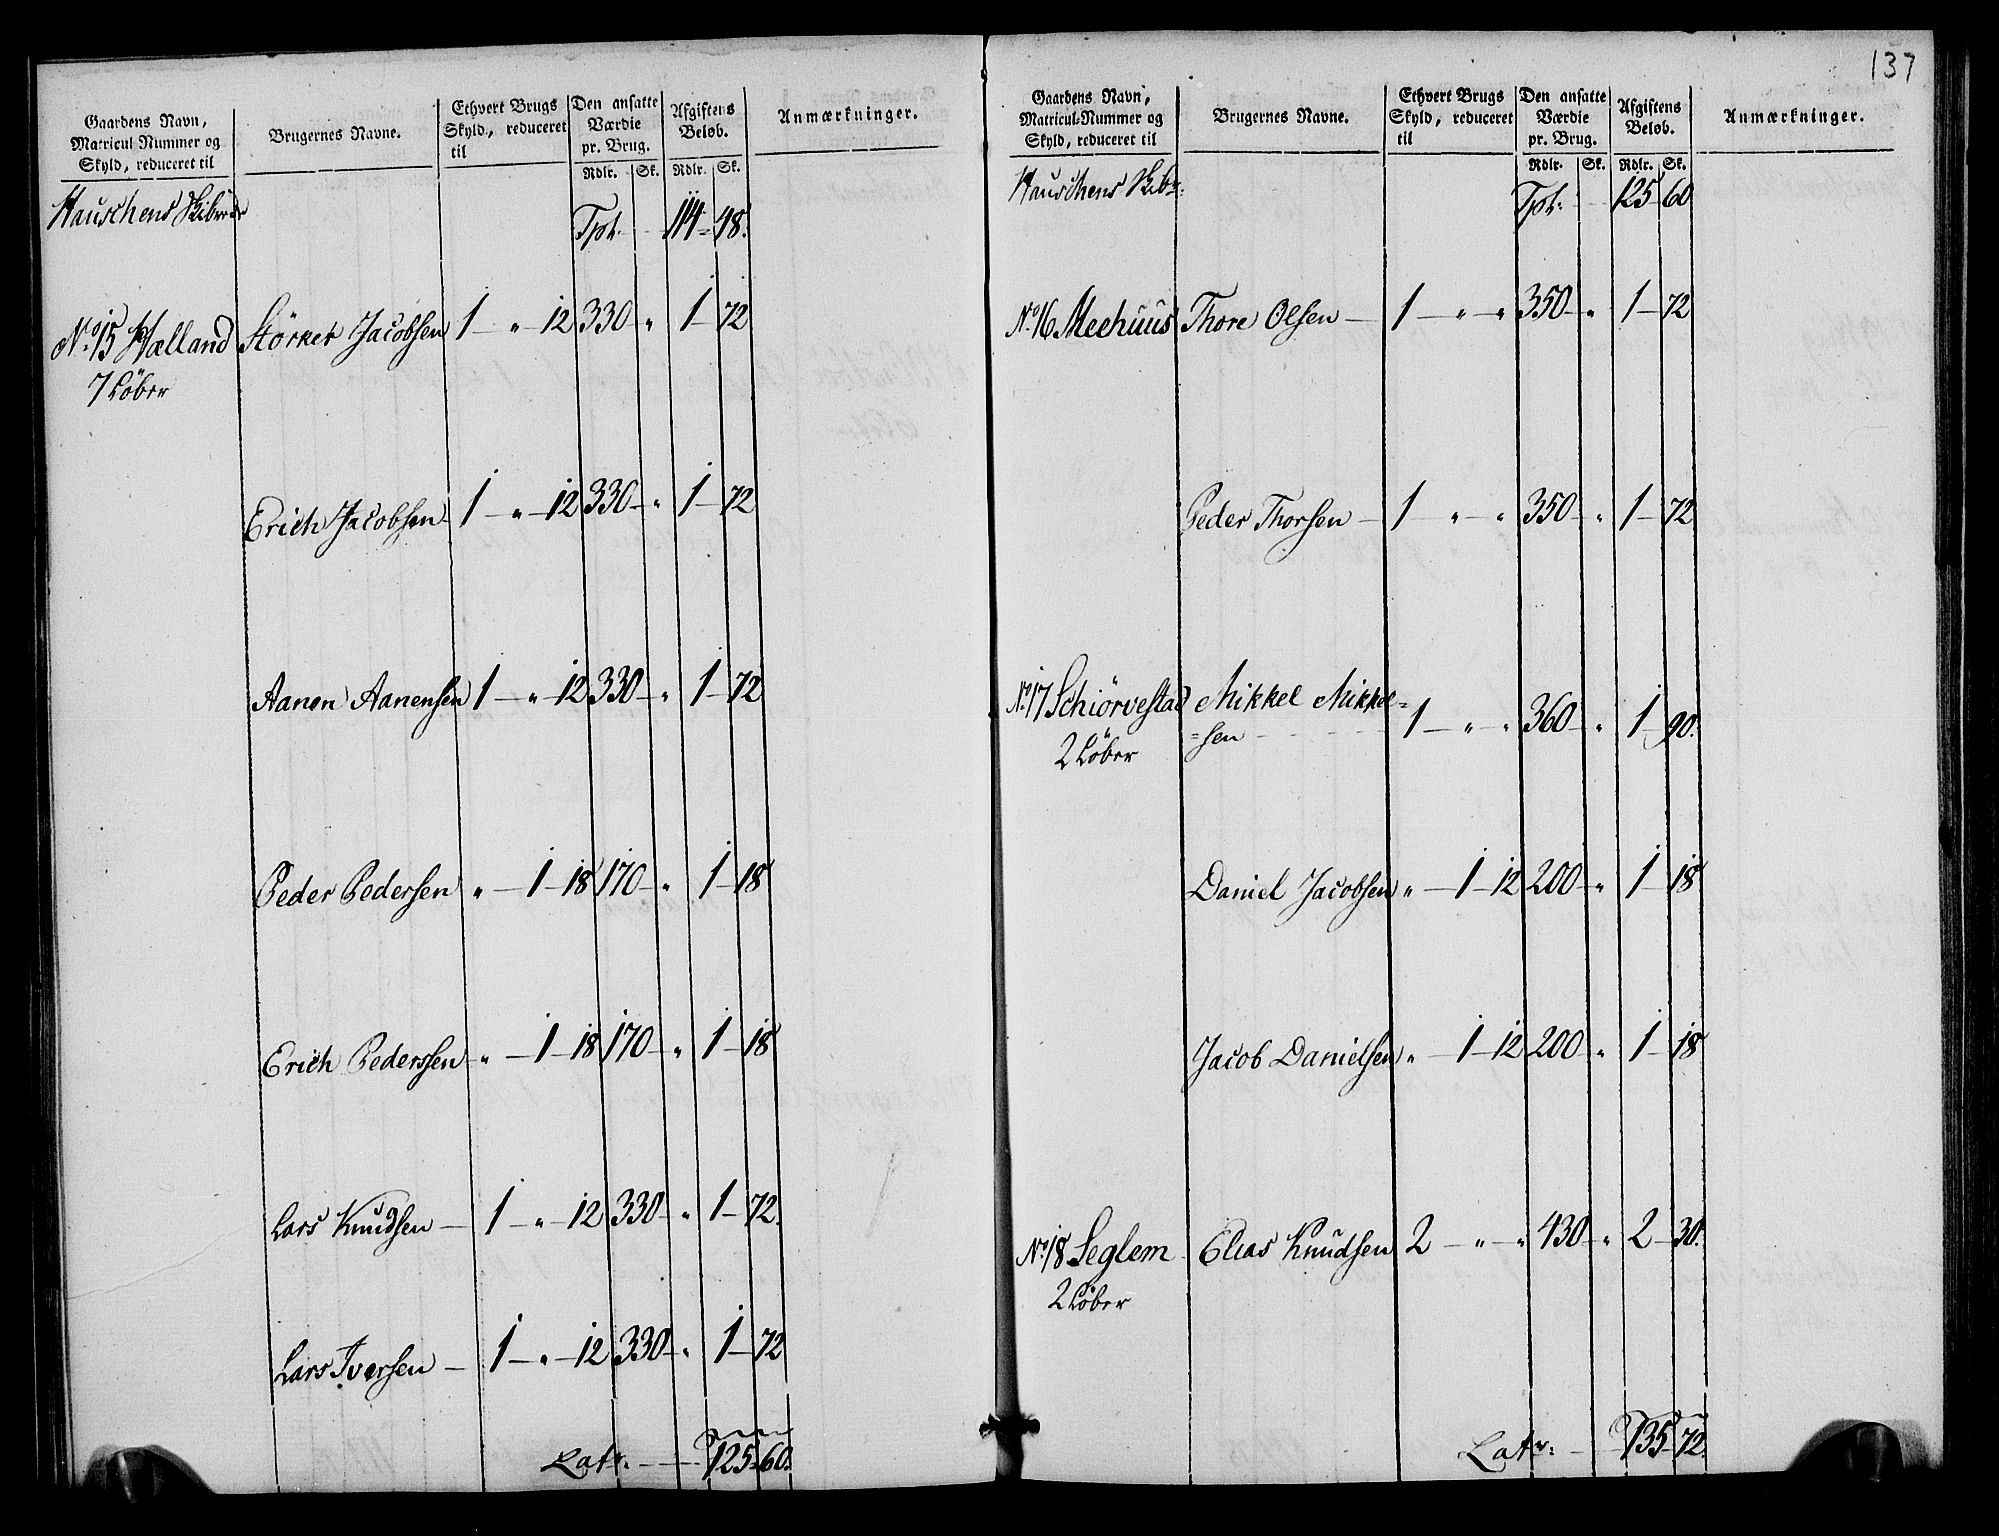 137
Gaardens Navn, Matricul Nummer og Skyld, reduceret til | Brugernes Navne. | Ethvert Brugs Skyld, reduceret til | Den ansatte Værdie pr. Brug. | Afgiftens Beløb. | Anmærkninger.
Rdlr. Sk. Rdlr. Sk.
Tpt. 114 48.
No. 15 Hælland Størker Jacobsen 1 — " — 12 330 — " 1 — 72
7 Løber
Erich Jacobsen 1 — " — 12 330 — " 1 — 72
Aanen Aanensen 1 — " — 12 330 — " 1 — 72
Peder Pedersen " — 1 — 18 170 — " 1 — 18
Erich Pederssen " — 1 — 18 170 — " 1 — 18
Lars Knudsen — 1 — " — 12 330 — " 1 — 72.
Lars Iversen — 1 — " — 12 330 — " 1 — 72
Latr. — 125 60.
Gaardens Navn, Matricul-Nummer og Skyld, reduceret til | Brugernes Navne. | Ethvert Brugs Skyld, reduceret til | Den ansatte Værdie pr. Brug. | Afgiftens Beløb. | Anmærkninger.
Rdlr. Sk. Rdlr. Sk.
Tpt. 125 60
No. 16 Meehuus Thore Olsen — 1 — " — " 350 — " 1 — 72
Peder Thorsen — 1 — " — " 350 — " 1 — 72
No. 17 Schiørvestad Mikkel Mikkel=
2 Løber =sen 1 — " — " 360 — " 1 — 90.
Daniel Jacobsen " — 1 — 12 200 — " 1 — 18
Jacob Danielsen " — 1 — 12 200 — " 1 — 18
No. 18 Seglem Elias Knudsen 2 — " — " 430 — " 2 — 30.
2 Løber
Latr. — 135 72.